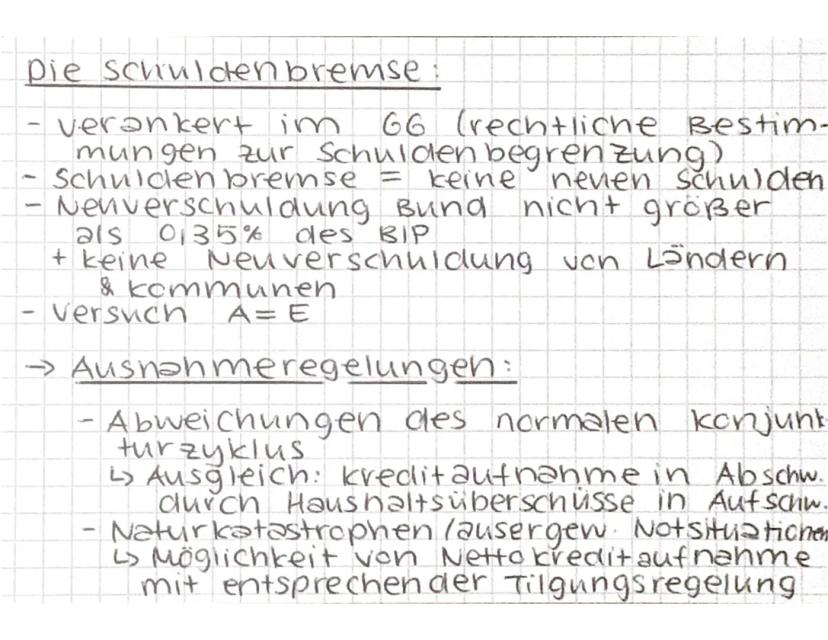 Die Schuldenbremse:
- verankert im GG (rechtliche Bestim-
mungen zur Schuldenbegrenzung)
- Schuldenbremse = keine neuen Schulden
- Neuverschuldung Bund nicht größer
als 0,35% des BIP
+ keine Neuverschuldung von Ländern
& Kommunen
- Versuch A = E
→ Ausnahmeregelungen:
- Abweichungen des normalen Konjunk-
turzyklus
↳ Ausgleich: Kreditaufnahme in Abschw.
durch Haushaltsüberschüsse in Aufschw.
- Naturkatastrophen / ausergew. Notsituationen
↳ Möglichkeit von Nettokreditaufnahme
mit entsprechender Tilgungsregelung